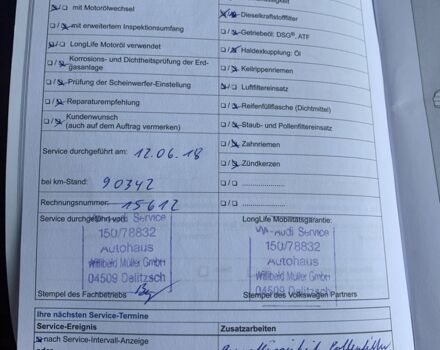 mit Motorölwechsel
mit erweitertem Inspektionsumfang
LongLife Motoröl verwendet
Korrosions- und Dichtheitsprüfung der Erd-
gasanlage
Prüfung der Scheinwerfer-Einstellung
Reparaturempfehlung
Kundenwunsch
(auch auf dem Auftrag vermerken)
Service durchgeführt am: 12.06.18
bei km-Stand: 90342
Rechnungsnummer: 15612
Service durchgeführt von:
Audi Service
150/78832
Autohaus
Willibald Müller GmbH
04509 Delitzsch
Stempel des Fachbetriebs
Dieselkraftstofffilter
Getriebeöl: DSG®, ATF
Haldexkupplung: Öl
Keilrippenriemen
Luftfiltereinsatz
Reifenfüllflasche (Dichtmittel)
Staub- und Pollenfiltereinsatz
Zahnriemen
Zündkerzen
LongLife Mobilitätsgarantie:
Audi Service
150/78832
Autohaus
Willibald Müller GmbH
04509 Delitzsch
Stempel des Volkswagen Partners
Ihre nächsten Service-Termine
Service-Ereignis
Zusatzarbeiten
nach Service-Intervall-Anzeige
oder